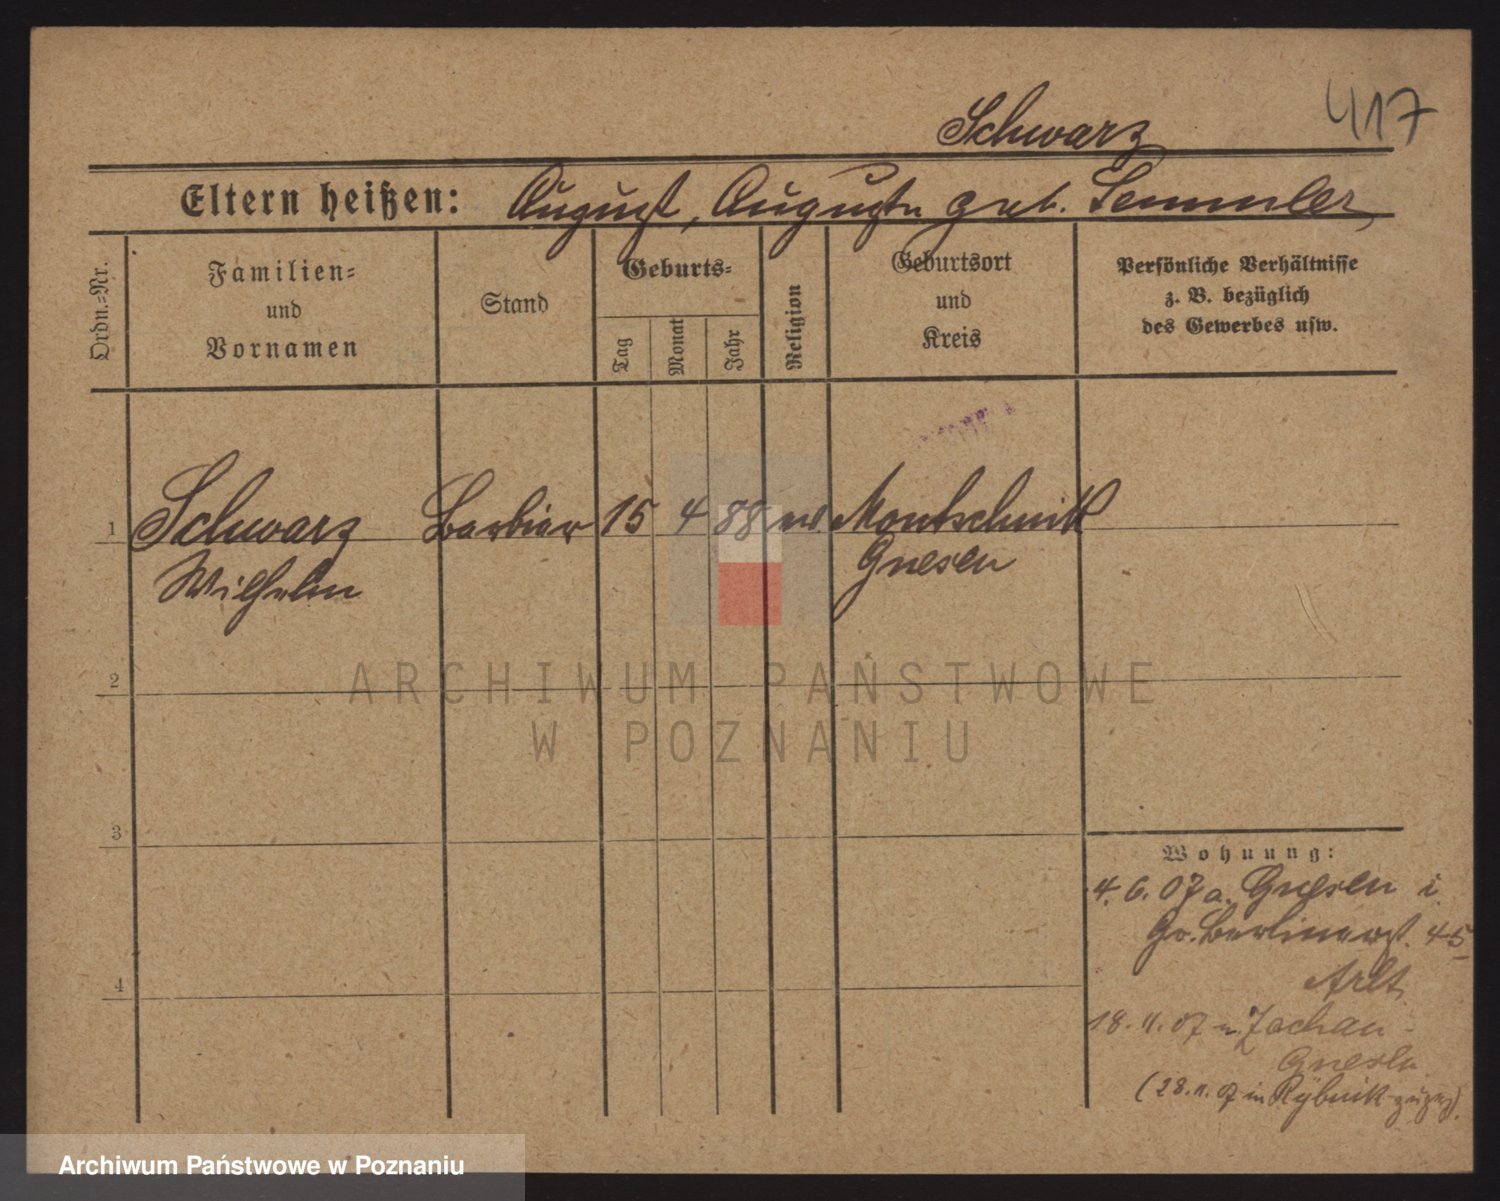 Schwarz
417
Eltern heißen: August, Auguste geb. Semmler
Ordn.-Nr.
Familien-
und
Vornamen
Stand
Geburts-
Tag
Monat
Jahr
Religion
Geburtsort
und
Kreis
Persönliche Verhältnisse
z. B. bezüglich
des Gewerbes usw.
1 Schwarz Barbier 15 4 88 ev. Montschnik
Wilhelm Gnesen
2
ARCHIWUM PAŃSTWOWE
W POZNANIU
3
Wohnung:
4. 6. 07 a. Gnesen i.
Gr. Berlinerst. 45
Arlt
4
18. 11. 07 n. Zachau
Gnesen
(28. 11. 07 in Rybnik zugez)
Archiwum Państwowe w Poznaniu